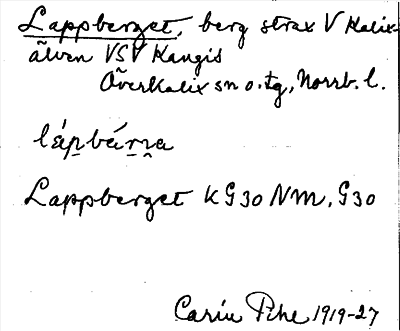 Lappberget, berg strax V Kalix-
älven VSV Kangis
Överkalix sn o. tg, Norrb. l.
lápbárna
Lappberget KG30 NM, G30
Carin Pihe 1919-27